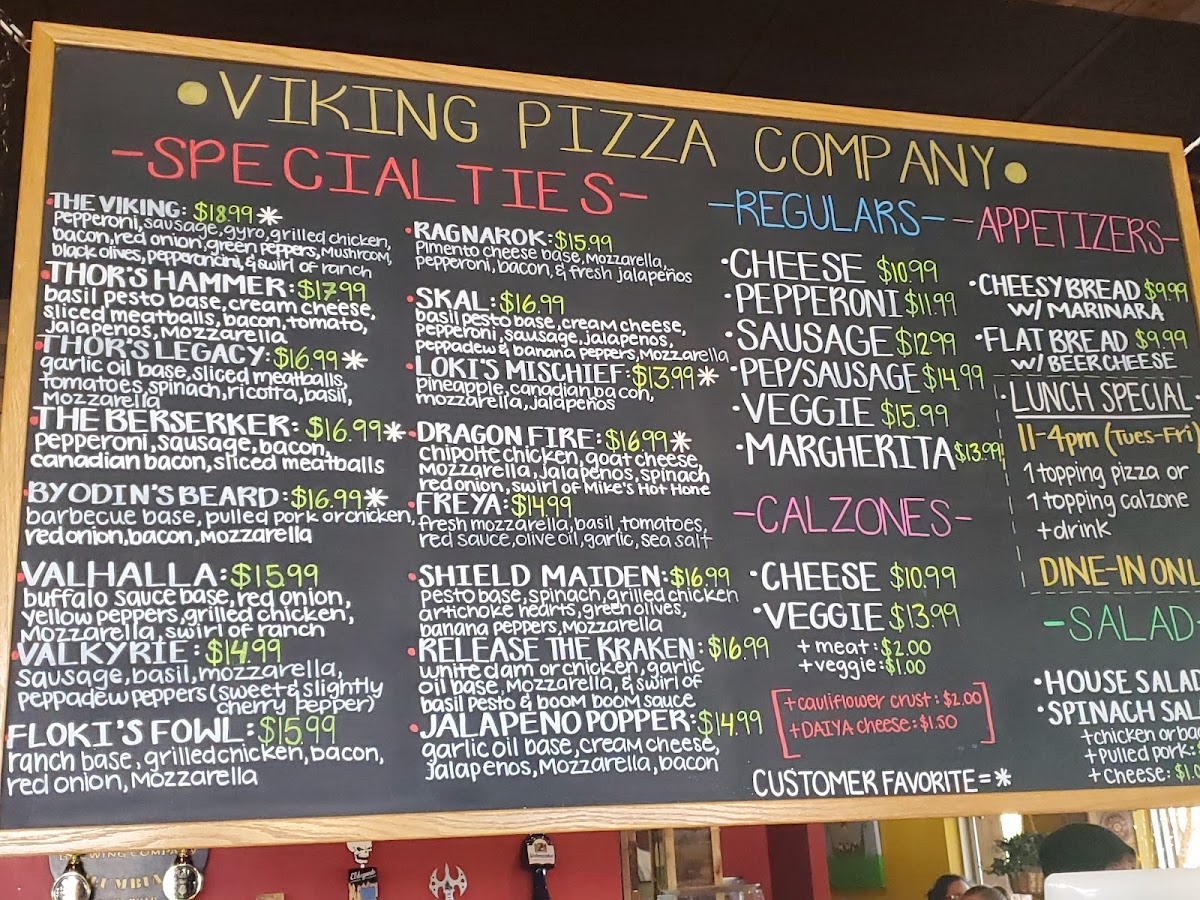 •VIKING PIZZA COMPANY•
-SPECIALTIES-
•THE VIKING: $18.99*
pepperoni, sausage, gyro, grilled chicken,
bacon, red onion, green peppers, Mushroom,
black olives, pepperoncini, & swirl of ranch
•THOR'S HAMMER: $17.99
basil pesto base, cream cheese,
sliced meatballs, bacon, tomato,
jalapeños, Mozzarella
•THOR'S LEGACY: $16.99*
garlic oil base, sliced meatballs,
tomatoes, spinach, ricotta, basil,
Mozzarella
•THE BERSERKER: $16.99*
pepperoni, sausage, bacon,
canadian bacon, sliced meatballs
•BY ODIN'S BEARD: $16.99*
barbecue base, pulled pork or chicken,
red onion, bacon, Mozzarella
•VALHALLA: $15.99
buffalo sauce base, red onion,
yellow peppers, grilled chicken,
Mozzarella, swirl of ranch
•VALKYRIE: $14.99
sausage, basil, mozzarella,
peppadew peppers (sweet & slightly
cherry pepper)
FLOKI'S FOWL: $15.99
ranch base, grilled chicken, bacon,
red onion, Mozzarella
•RAGNAROK: $15.99
Pimento cheese base, Mozzarella,
pepperoni, bacon, & fresh jalapeños
•SKAL: $16.99
basil pesto base, cream cheese,
pepperoni, sausage, jalapeños,
peppadew & banana peppers, Mozzarella
•LOKI'S MISCHIEF: $13.99*
pineapple, canadian bacon,
mozzarella, jalapeños
•DRAGON FIRE: $16.99*
chipotle chicken, goat cheese,
Mozzarella, jalapeños, spinach
red onion, swirl of Mike's Hot Hone
•FREYA: $14.99
fresh mozzarella, basil, tomatoes,
red sauce, olive oil, garlic, sea salt
•SHIELD MAIDEN: $16.99
pesto base, spinach, grilled chicken
artichoke hearts, green olives,
banana peppers, Mozzarella
•RELEASE THE KRAKEN: $16.99
white clam or chicken, garlic
oil base, Mozzarella, & swirl of
basil pesto & boom boom sauce
•JALAPEÑO POPPER: $14.99
garlic oil base, cream cheese,
jalapeños, Mozzarella, bacon
-REGULARS-
•CHEESE $10.99
•PEPPERONI $11.99
•SAUSAGE $12.99
•PEP/SAUSAGE $14.99
•VEGGIE $15.99
•MARGHERITA $13.99
-CALZONES-
•CHEESE $10.99
•VEGGIE $13.99
+meat: $2.00
+veggie: $1.00
+cauliflower crust: $2.00
+DAIYA cheese: $1.50
CUSTOMER FAVORITE = *
-APPETIZERS-
•CHEESY BREAD $9.99
W/ MARINARA
•FLAT BREAD $9.99
W/ BEER CHEESE
LUNCH SPECIAL
11-4pm (Tues-Fri)
1 topping pizza or
1 topping calzone
+drink
DINE-IN ONL
-SALAD
•HOUSE SALAD
•SPINACH SAL
+chicken or bac
+pulled pork:
+cheese: $1.0